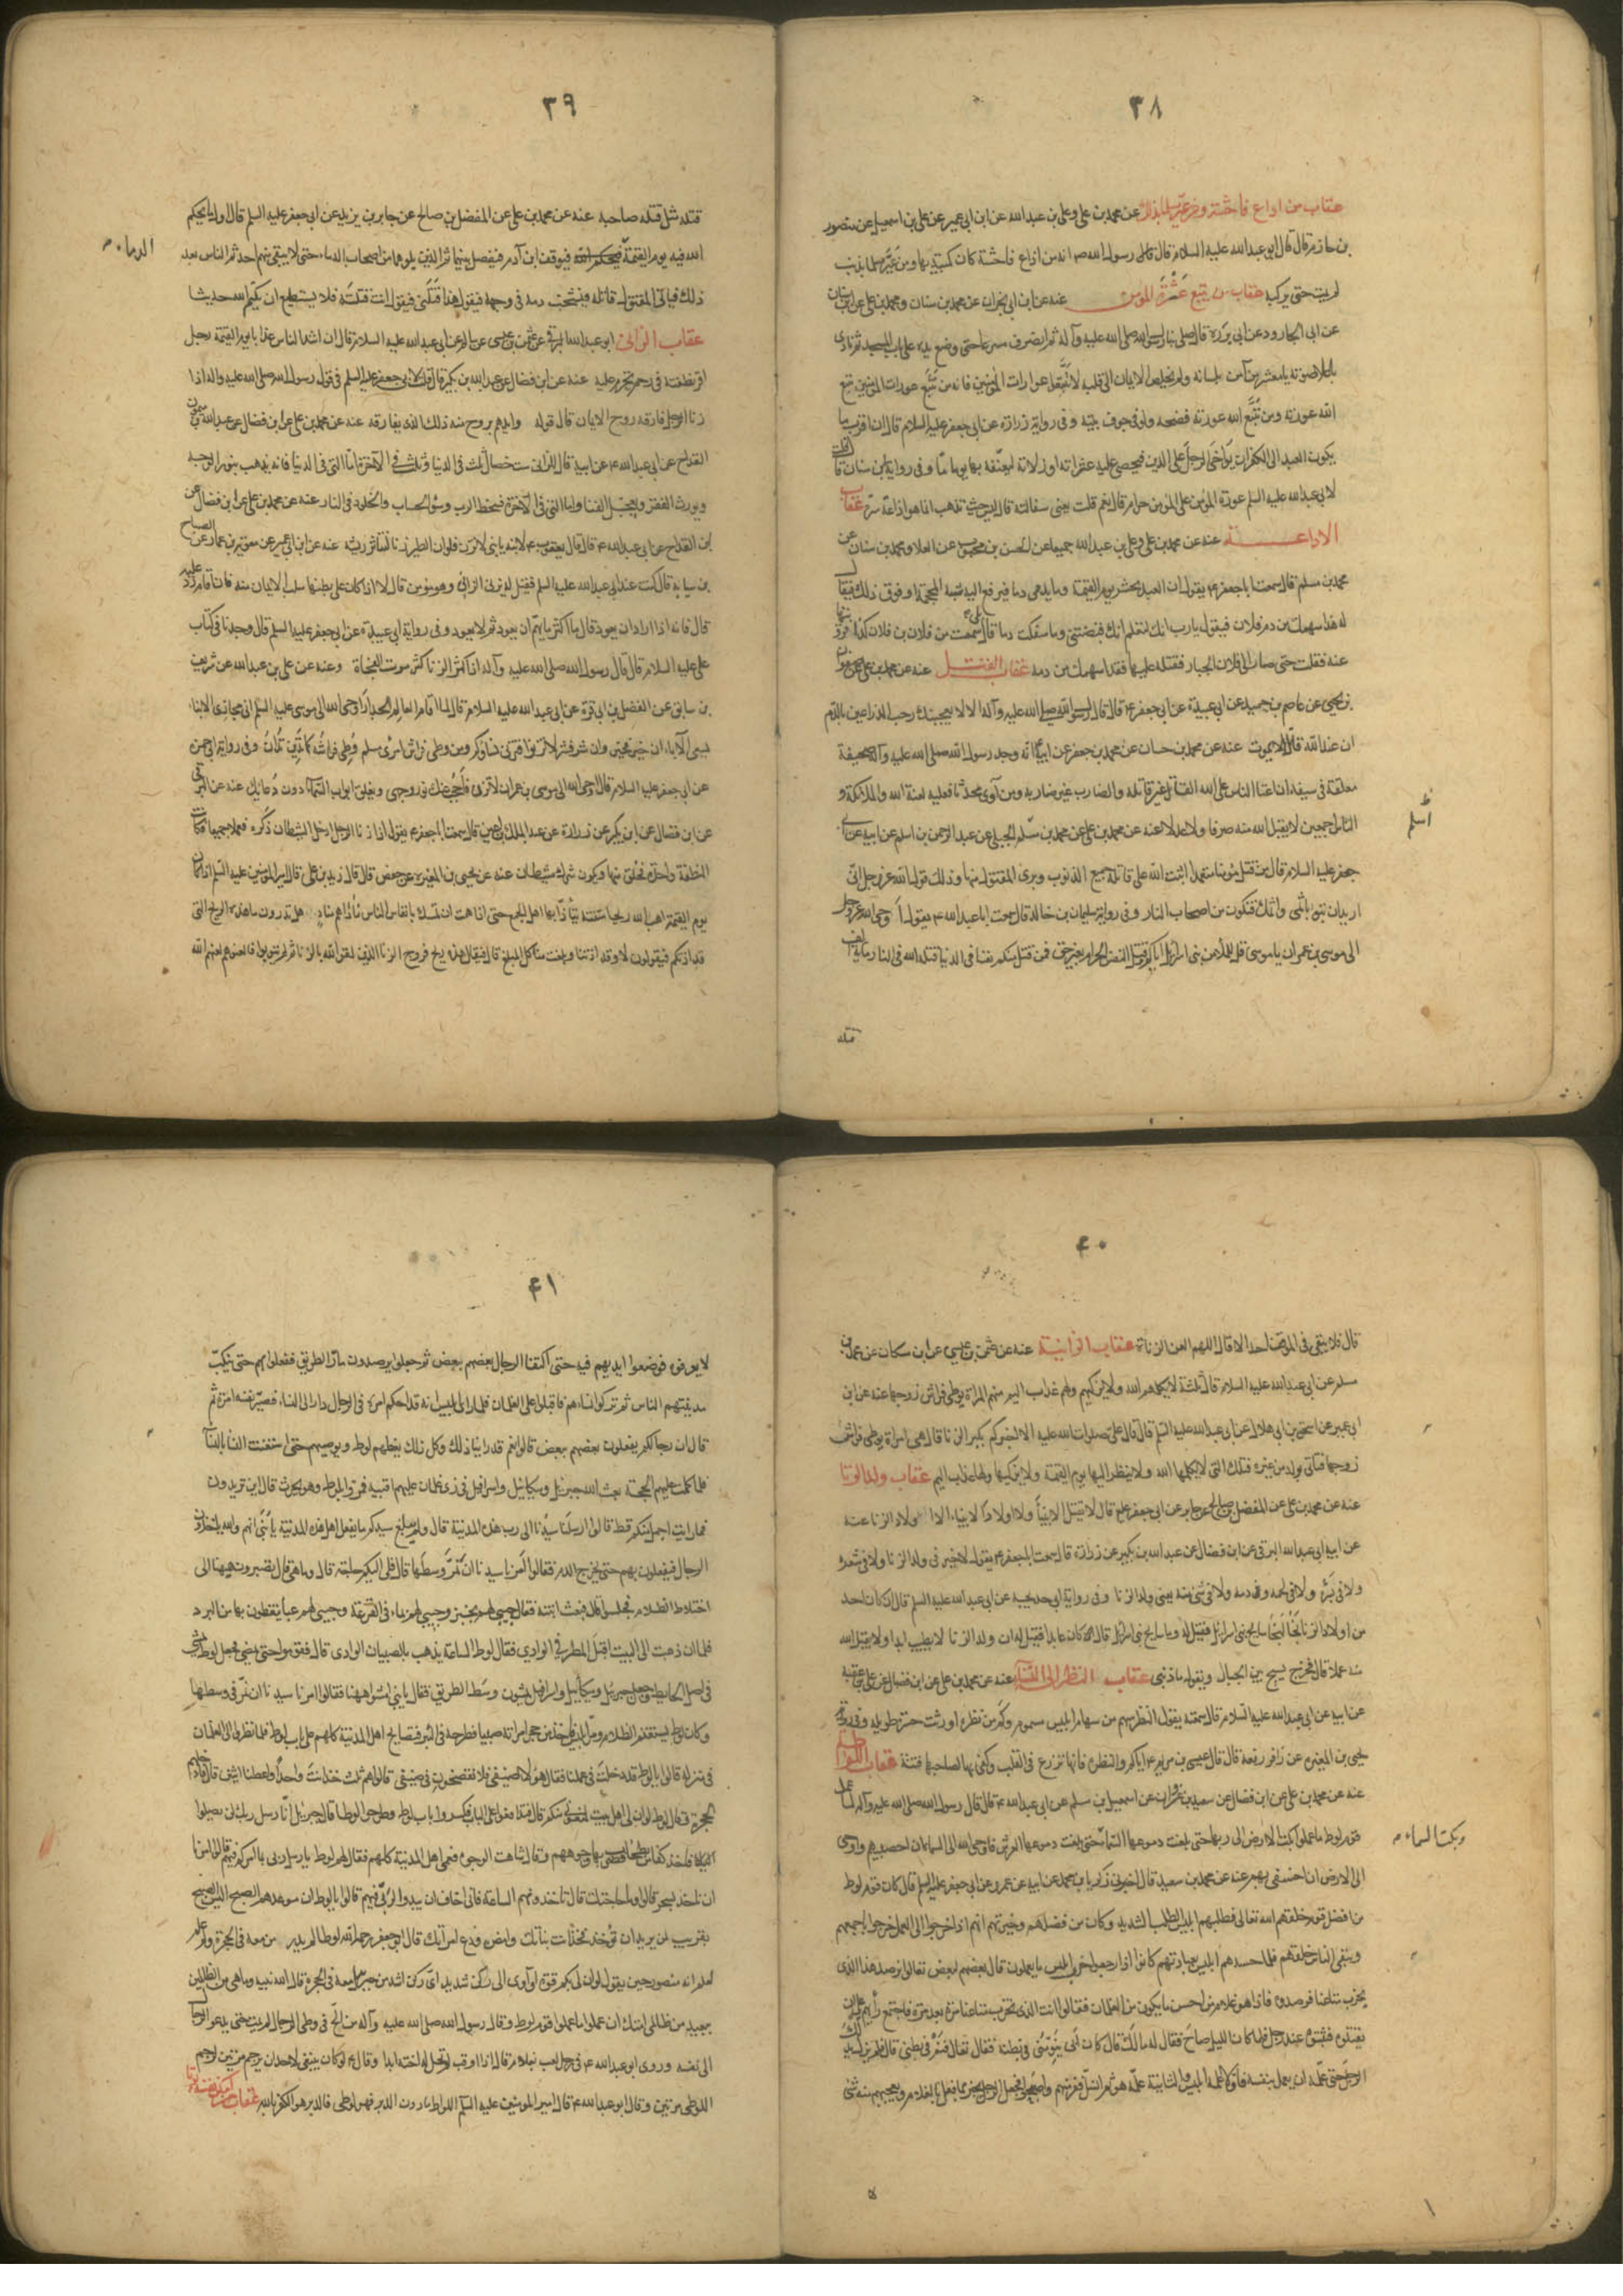 ٣٨
عقاب من اذاع فاحشة ومن عيّر مسلما بذنب عنه عن محمد بن علي وعلي بن عبد الله عن ابن ابي عمير عن علي بن اسمعيل عن منصور
بن حازم قال قال ابو عبد الله عليه السلام قال قال رسول الله ص انه من اذاع فاحشة كان كمبتديها ومن عيّر مسلما بذنب
لم يمت حتى يركبه عقاب من يتبع عثرة المؤمن عنه عن ابن ابي نجران عن محمد بن سنان ومحمد بن علي عن ابن سنان
عن ابي الجارود عن ابي بردة قال صلى بنا رسول الله صلى الله عليه وآله ثم انصرف مسرعا حتى وضع يده على باب المسجد ثم نادى
باعلا صوته يا معشر من آمن بلسانه ولم يخلص الايمان الى قلبه لا تتبعوا عورات المؤمنين فانه من تتبع عورات المؤمنين تتبع
الله عورته ومن تتبع الله عورته فضحه ولو في جوف بيته وفي رواية زرارة عن ابي جعفر عليه السلام قال ان اقرب ما
يكون العبد الى الكفر ان يواخي الرجل على الدين فيحصي عليه عثراته او زلاته ليعنّفه بها يوما ما وفي رواية ابن سنان قال قلت
لابي عبد الله عليه السلم عورة المؤمن على المؤمن حرام قال نعم قلت يعني سفلته قال ليس حيث تذهب انما هو اذاعة سرّه عقاب
الاذاعة عنه عن محمد بن علي وعلي بن عبد الله جميعا عن الحسن بن محبوب عن العلا ومحمد بن سنان عن
محمد بن مسلم قال سمعت ابا جعفر ع يقول ان العبد يحشر يوم القيمة وما يدمى دما فيرفع اليه شبه المحجمة او فوق ذلك فيقال
له هذا سهمك من دم فلان فيقول يا رب انك لتعلم انك قبضتني وما سفكت دما قال بلى سمعت من فلان بن فلان كذا فرويتها
عنه فنقلت حتى صار الى فلان الجبار فقتله عليها فقد اسهمك من دمه عقاب القتل عنه عن محمد بن علي عن صفوان
بن يحيى عن عاصم بن حميد عن ابي عبيدة عن ابي جعفر ع قال قال رسول الله صلى الله عليه وآله الا لا يعجبنك رحب الذراعين بالدم
ان عند الله قاتلا لا يموت عنه عن محمد بن حسان عن محمد بن جعفر عن ابيه ع انه وجد رسول الله صلى الله عليه وآله صحيفة
معلقة في سيفه ان اعتا الناس على الله القاتل غير قاتله والضارب غير ضاربه ومن آوى محدثا فعليه لعنة الله والملائكة و
الناس اجمعين لا يقبل الله منه صرفا ولا عدلا عنه عن محمد بن علي عن محمد بن سلم الجبلي عن عبد الرحمن بن اسلم عن ابيه عن ابي
جعفر عليه السلام قال من قتل مؤمنا متعمدا اثبت الله على قاتله جميع الذنوب وبرى المقتول منها وذلك قول الله عز وجل انى
اريد ان تبوء باثمى واثمك فتكون من اصحاب النار وفي رواية سليمان بن خالد قال سمعت ابا عبد الله ع يقول اوحى الله عز وجل
الى موسى بن عمران يا موسى قل للملأ من بنى اسرائيل اياكم وقتل النفس الحرام بغير حق فمن قتل منكم نفسا في الدنيا قتله الله في النار مائة الف
قتله
اسلم
٣٩
قتله مثل قتله صاحبه عنه عن محمد بن علي عن المفضل بن صالح عن جابر بن يزيد عن ابي جعفر عليه السلم قال اول ما يحكم
الله فيه يوم القيمة فيوقف ابن آدم فيفصل بينهما ثم الذين يلونهما من اصحاب الدماء حتى لا يبقى منهم احد ثم الناس بعد
الدماء
ذلك فياتي المقتول قاتله فيشخب دمه في وجهه فيقول هذا قتلني فيقول انت قتلته فلا يستطيع ان يكتم الله حديثا
عقاب الزانى ابو عبد الله البرقي عن عثمن بن عيسى عن سالم عن ابي عبد الله عليه السلام قال ان اشد الناس عذابا يوم القيمة رجل
اقر نطفته في رحم تحرم عليه عنه عن ابن فضال عن عبد الله بن بكير قال قلت لابي جعفر عليه السلم في قول رسول الله صلى الله عليه واله اذا
زنا الرجل فارقه روح الايمان قال قوله وايدهم بروح منه ذلك الذى يفارقه عنه عن محمد بن علي عن ابن فضال عن عبد الله بن ميمون
القداح عن ابي عبد الله ع عن ابيه قال للزاني ست خصال ثلث في الدنيا وثلث في الآخرة امّا التى في الدنيا فانه يذهب بنور الوجه
ويورث الفقر ويعجّل الفنا واما التى في الآخرة فسخط الرب وسؤ الحساب والخلود في النار عنه عن محمد بن علي عن ابن فضال عن
ابن القداح عن ابي عبد الله ع قال قال يعقوب ع لابنه يا بني لا تزن فلو ان الطير زنا لتناثر ريشه عنه عن ابن ابي عمير عن معوية بن عمار عن الصباح
بن سيابة قال كنت عند ابي عبد الله عليه السلم فقيل له يزني الزاني وهو مؤمن قال لا اذا كان على بطنها سلب الايمان منه فان قام ردّ عليه
قال فانه اذا اراد ان يعود قال ما اكثر ما يهم ان يعود ثم لا يعود وفي رواية ابي عبيدة ع عن ابي جعفر عليه السلم قال وجدنا في كتاب
علي عليه السلام قال قال رسول الله صلى الله عليه وآله اذا كثر الزنا كثر موت الفجاة وعنه عن علي بن عبد الله عن شريف
بن سابق عن الفضل بن ابي قرة عن ابي عبد الله عليه السلام قال لما اقام العالم الجدار اوحى الله الى موسى عليه السلم انى مجازى الابناء
بسعى الآباء ان خير فخير وان شر فشر لا تزنوا فتزنى نساؤكم ومن وطى فراش امرئ مسلم وُطِى فراشه كما تَدين تُدان وفي رواية ابي حمزة
عن ابي جعفر عليه السلام قال اوحى الله الى موسى بن عمران لا تزنى فاحجب عنك نور وجهى وتغلق ابواب السماء دون دعائك عنه عن البرقي
عن ابن فضال عن ابن بكير عن زرارة عن عبد الملك بن اعين قال سمعت ابا جعفر ع يقول اذا زنا الرجل ادخل الشيطان ذكره فعملا جميعا فكانت
النطفة واحدة فخلق منها ويكون شرك شيطان عنه عن يحيى بن المغيرة عن حفص قال قال زيد بن علي قال امير المؤمنين عليه السلم اذا كان
يوم القيمة اهب الله ريحا منتنة يتأذا بها اهل الجمع حتى اذا همت ان تمسك بانفاس الناس ناداهم مناد هل تدرون ما هذه الريح التى
قد اذتكم فيقولون لا وقد اذتنا وبلغت منا كل المبلغ قال فيقال هذه ريح فروج الزنا الذين لقوا الله بالزنا ثم لم يتوبوا فالعنوهم لعنهم الله
٤٠
قال فلا يبقى في الموقف احد الا قال اللهم العن الزناة عقاب الزانية عنه عن عثمن بن عيسى عن ابن سكان عن محمد بن
مسلم عن ابي عبد الله عليه السلام قال ثلثة لا يكلمهم الله ولا يزكيهم ولهم عذاب اليم منهم المراة يوطى فراش زوجها عنه عن ابن
ابي عمير عن اسحق بن ابي هلال عن ابي عبد الله عليه السلم قال قال على صلوات الله عليه الا اخبركم بكبر الزنا قال هى امراة يوطى فراش
زوجها فتاتى بولد من غيره فتلك التى لا يكلمها الله ولا ينظر اليها يوم القيمة ولا يزكيها ولها عذاب اليم عقاب ولد الزنا
عنه عن محمد بن علي عن المفضل بن صالح عن جابر عن ابي جعفر ع قال لا يقتل الانبيا ولا اولاد الانبياء الا اولاد الزنا عنه
عن ابيه ابي عبد الله البرقي عن ابن فضال عن عبد الله بن بكير عن زرارة قال سمعت ابا جعفر ع يقول لا خير في ولد الزنا ولا في شعره
ولا في بَشَره ولا في لحمه ولا في دمه ولا في شئ منه يعنى ولد الزنا وفي رواية ابي خديجة عن ابي عبد الله عليه السلم قال ان كان احد
من اولاد الزنا نجا لنجا سايح بنى اسرائيل فقيل له وما سايح بنى اسرائيل قال كان عابدا فقيل له ان ولد الزنا لا يطيب ابدا ولا يقبل الله
منه عملا قال فخرج يسيح بين الجبال ويقول ما ذنبى عقاب النظر الى النساء عنه عن محمد بن علي عن ابن فضال عن علي بن عقبة
عن ابيه عن ابي عبد الله عليه السلام قال سمعته يقول النظر سهم من سهام ابليس مسموم وكم من نظرة اورثت حسرة طويلة وفي رواية
يحيى بن المغيرة عن زافر رفعه قال قال عيسى بن مريم ع اياكم والنظرة فانها تزرع في القلب وكفى بها لصاحبها فتنة عقاب اللواط
عنه عن محمد بن علي عن ابن فضال عن سعيد بن غزوان عن اسمعيل بن مسلم عن ابي عبد الله ع قال قال رسول الله صلى الله عليه وآله لما عمل
قوم لوط ما عملوا بكت الارض الى ربها حتى بلغت دموعها السماء حتى بلغت دموعها العرش فاوحى الله الى السماء ان احصبيهم واوحى
وبكت السماء
الى الارض ان اخسفي بهم عنه عن محمد بن سعيد قال اخبرنى زكريا بن محمد عن ابيه عن عمرو عن ابي جعفر عليه السلم قال كان قوم لوط
من افضل قوم خلقهم الله تعالى فطلبهم ابليس الطلب الشديد وكان من فضلهم وخيرتهم انهم اذا خرجوا الى العمل خرجوا باجمعهم
ويبقى النساء خلفهم فلما حسدهم ابليس لعبادتهم كانوا اذا رجعوا خرب ابليس ما يعملون قال بعضهم لبعض تعالوا نرصد هذا الذى
يخرب متاعنا فرصدوه فاذا هو غلام من احسن ما يكون من الغلمان فقالوا انت الذى تخرب متاعنا مرة بعد مرة فاجتمع رأيهم على ان
يقتلوه فبيّتوه عند رجل فلما كان الليل صاح فقال له مالك قال كان ابى ينوّمنى في بطنه فقال تعال فنم في بطنى قال فلم يزل يدلك
الرجل حتى علّمه ان يعمل بنفسه فاولا علمه ابليس والثانية علّمه هو ثم انسلّ ففر منهم واصبحوا فجعل الرجل يخبر بما فعل بالغلام ويعجبهم منه شئ
لا
٤١
لا يعرفوه فوضعوا ايديهم فيه حتى اكتفا الرجال بعضهم ببعض ثم جعلوا يرصدون مارّ الطريق فيفعلون بهم حتى تنكّب
مدينتهم الناس ثم تركوا نساءهم فاقبلوا على الغلمان فلما راى ابليس انه قد احكم امره في الرجال دار الى النساء فصيّر نفسه امرأة ثم
قال ان رجالكم يفعلون بعضهم ببعض قالوا نعم قد راينا ذلك وكل ذلك يعظهم لوط ويوصيهم حتى استغنت النسا بالنسا
فلما كملت عليهم الحجة بعث الله جبرئيل وميكائيل واسرافيل في زى غلمان عليهم اقبية فمروا بلوط وهو يحرث قال اين تريدون
فما رايت اجمل منكم قط قالوا ارسلنا سيدنا الى رب هذه المدينة قال ولم يبلغ سيدكم ما يفعل اهل هذه المدينة يا بنى انهم والله ياخذون
الرجال فيفعلون بهم حتى يخرج الدم فقالوا امرنا سيدنا ان نمر وسطها قال فلى اليكم حاجة قال وما هى قال تصبرون ههنا الى
اختلاط الظلام فجلسوا قال فبعث ابنته فقال جيئى لهم بخبز وجيئى لهم بماء في القرعة وجيئى لهم عبا يتغطون بها من البرد
فلما ان ذهبت الى البيت اقبل المطر في الوادى فقال لوط الساعة يذهب بالصبيان الوادى قال فقوموا حتى نمضى فجعل لوط يمشى
في اصل الحايط وجعل جبرئيل وميكائيل واسرافيل يمشون وسط الطريق فقال يا بنى امشوا ههنا فقالوا امرنا سيدنا ان نمر في وسطها
وكان لوط يستغنم الظلام ومرّ ابليس فاخذ من حجر امراة صبيا فطرحه في البئر فتصايح اهل المدينة كلهم على باب لوط فلما نظروا الى الغلمان
في منزله قالوا يا لوط قد دخلت في عملنا فقال هؤلاء ضيفى فلا تفضحون في ضيفى قالوا هم ثلثة خذ انت واحدا واعطنا اثنين قال فادخلهم
الحجرة وقال لوط لو ان لى اهل بيت يمنعونى منكم قال فتدافعوا على الباب فكسروا باب لوط وطرحوا لوطا فقال جبرئيل انا رسل ربك لن يصلوا
اليك فاخذ كفا من بطحاء فضرب بها وجوههم وقال شاهت الوجوه فعمى اهل المدينة كلهم فقال لهم لوط يا رسل ربى بما امركم فيهم قالوا امرنا
ان ناخذهم بسحر قالوا وما حاجتك قال تاخذونهم الساعة فانى اخاف ان يبدو لربى فيهم قالوا يا لوط ان موعدهم الصبح اليس الصبح
بقريب لمن يريد ان يؤخذ فخذ انت بناتك وامض ودع امراتك قال ابو جعفر رحم الله لوطا لم يدر من معه في الحجرة ولو علم
لعلم انه منصور حين يقول لو ان لى بكم قوة او آوى الى ركن شديد اى ركن اشد من جبرئيل معه في الحجرة قال الله لنبيه وما هى من الظالمين
ببعيد من ظالمى امتك ان عملوا ما عملوا قوم لوط وقال رسول الله صلى الله عليه وآله من الحّ في وطى الرجال لم يمت حتى يدعو الرجال
الى نفسه وروى ابو عبد الله ع في رجل لعب بغلام قال اذا اوقب لم تحل له اخته ابدا وقال ع لو كان ينبغى لاحد ان يرجم مرتين لرجم
اللوطى مرتين وقال ابو عبد الله ع قال امير المؤمنين عليه السلم اللواط ما دون الدبر فهو لوطى فالدبر هو الكفر بالله عقاب من امكن من نفسه